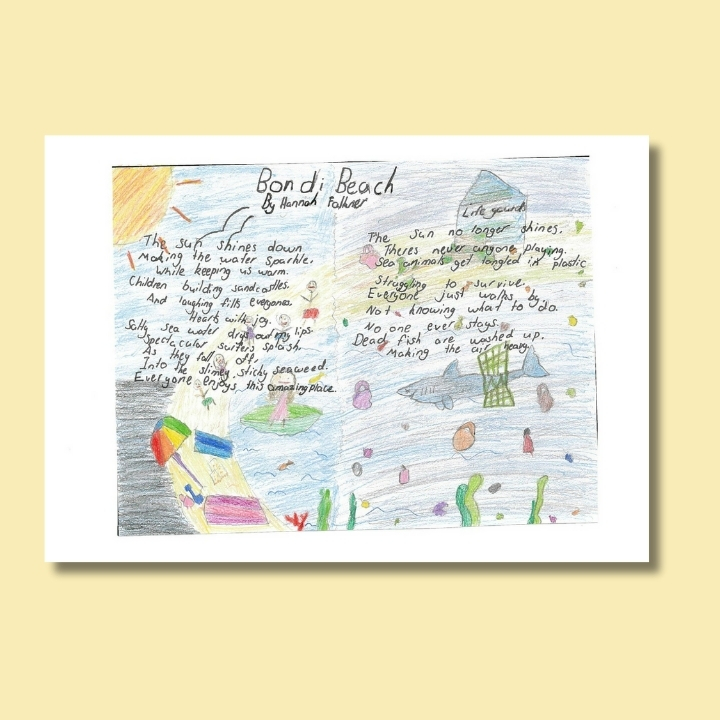 Bondi Beach
By Hannah Falkner
The sun shines down
Making the water sparkle.
While keeping us warm.
Children building sandcastles.
And laughing fills everyones.
Hearts with joy.
Salty sea water drys out my lips.
Spectacular surfers splash.
As they fall off,
Into the slimey, sticky seaweed.
Everyone enjoys this amazing place.
Life guards
The sun no longer shines.
Theres never anyone playing.
Sea animals get tangled in plastic
Struggling to survive.
Everyone just walks by
Not knowing what to do.
No one ever stays.
Dead fish are washed up.
Making the air heavy.